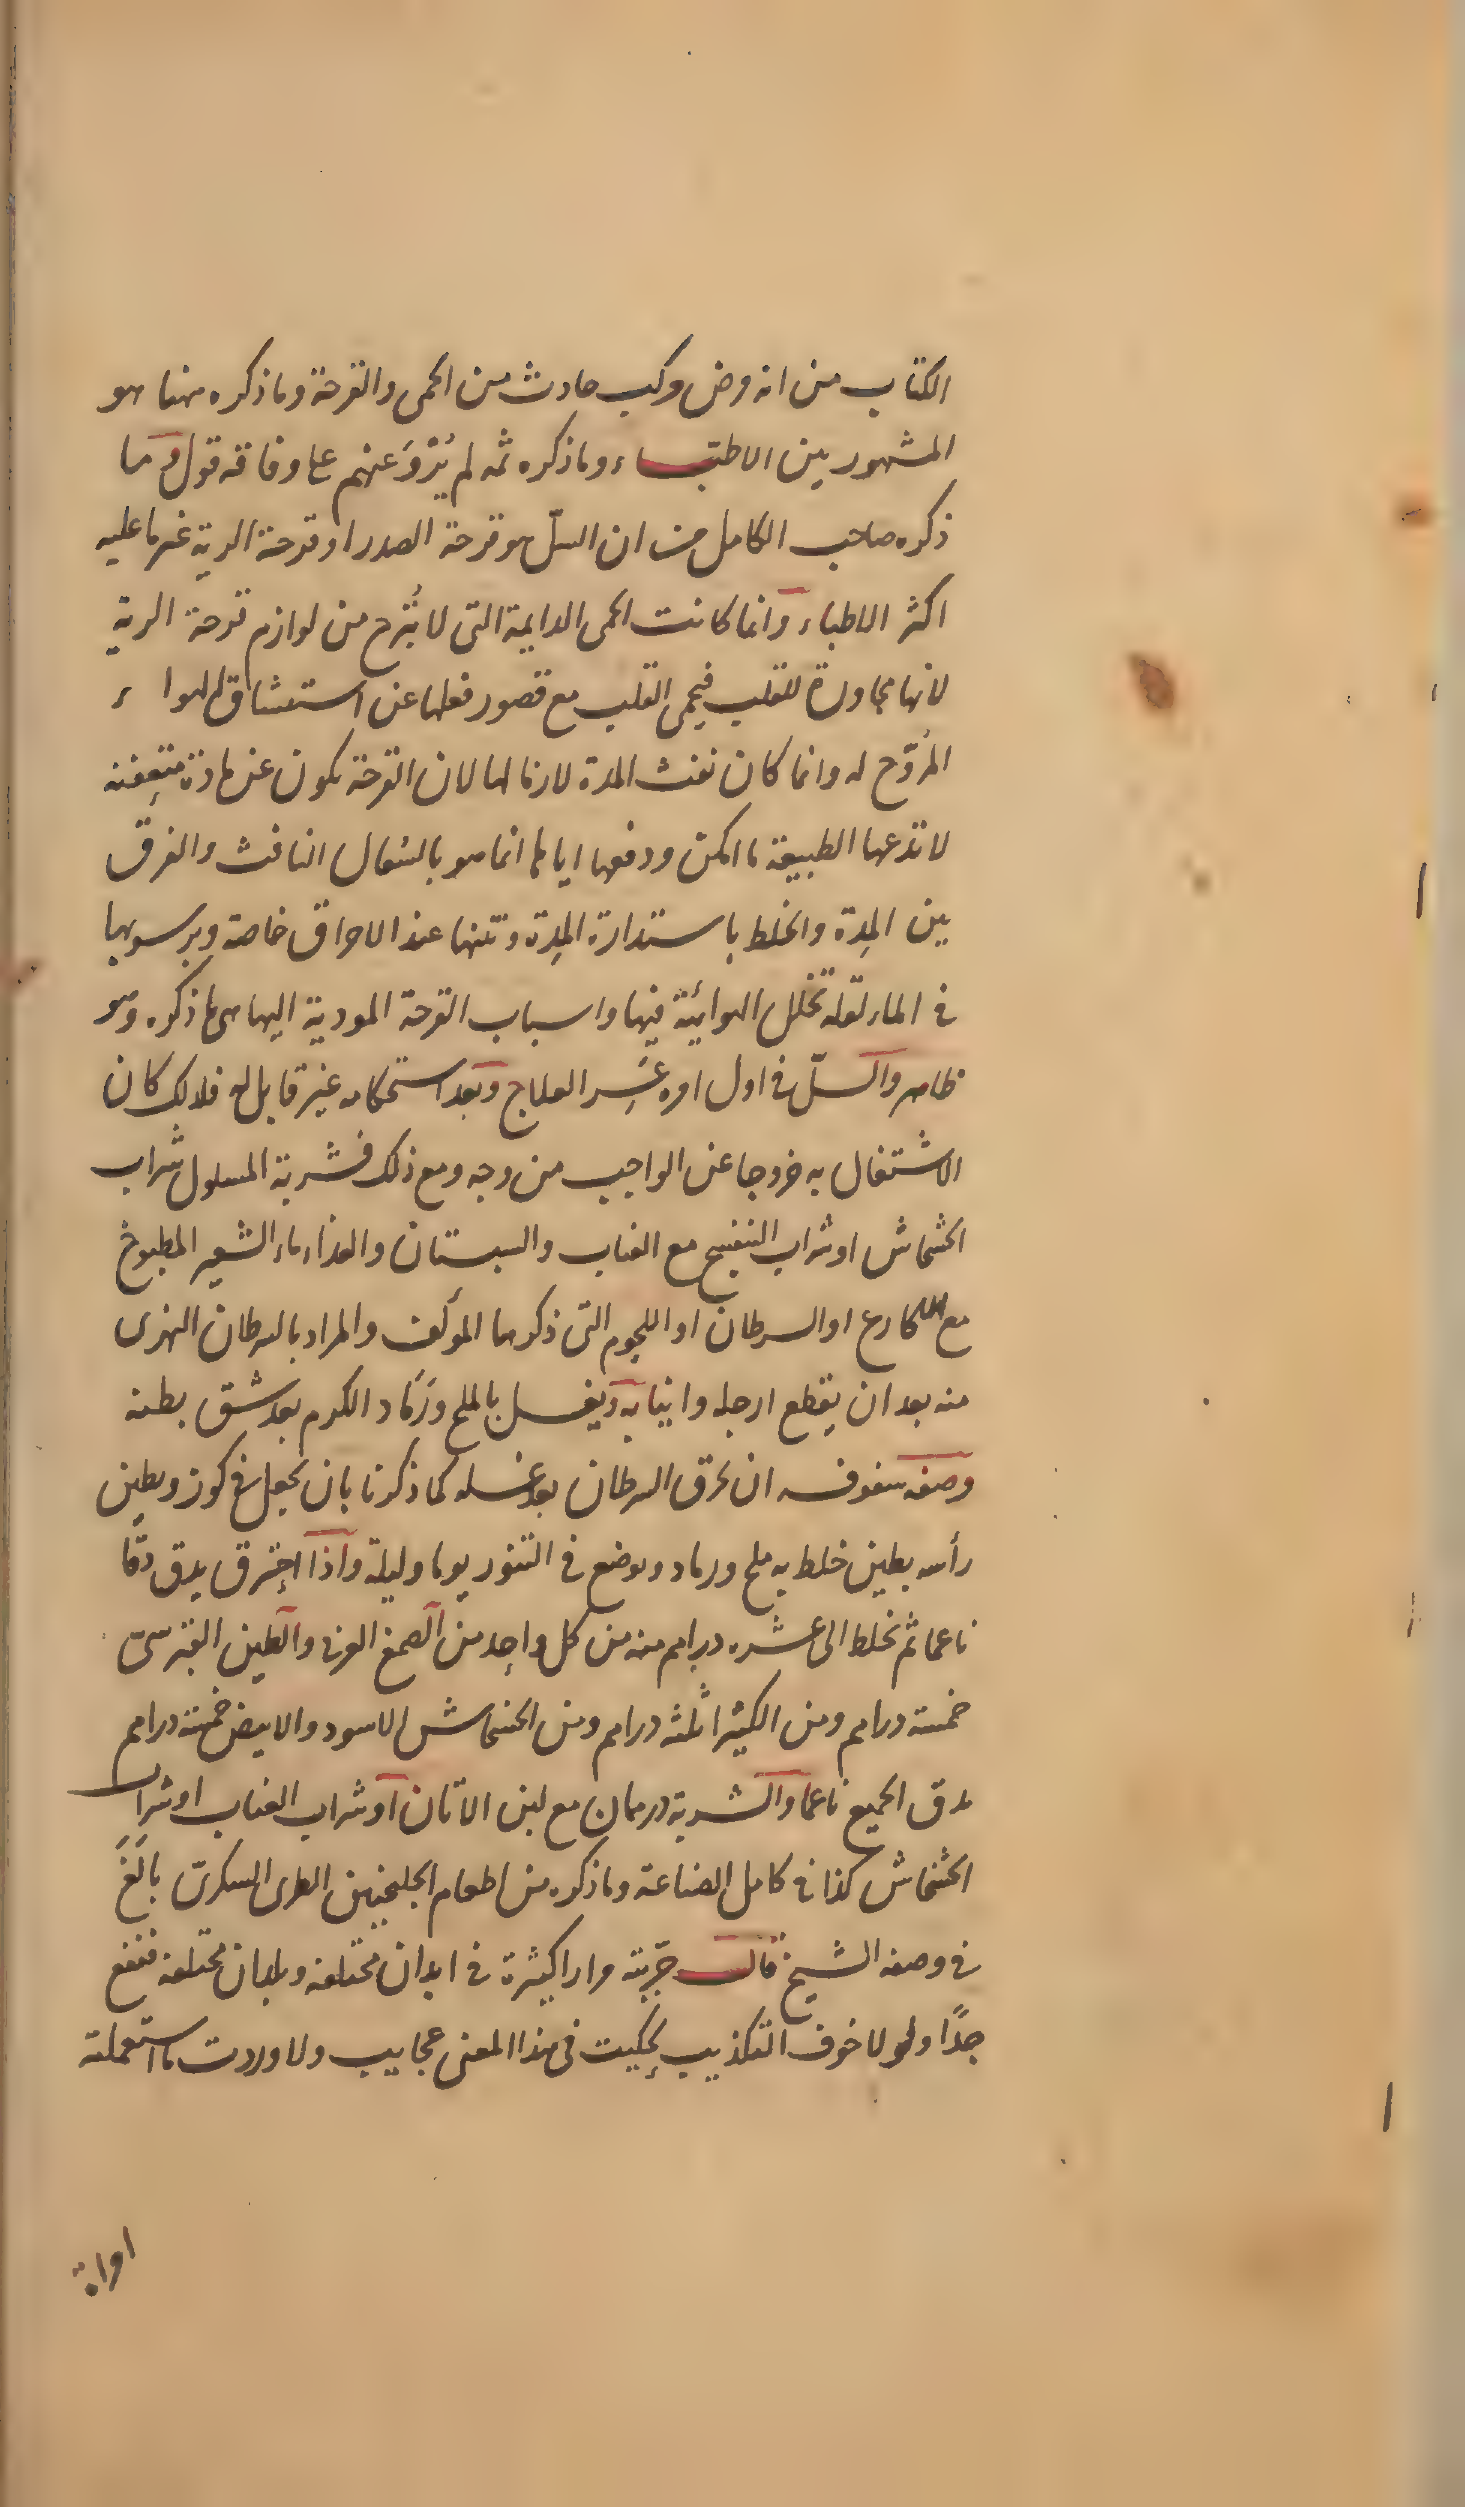 الكتاب من انه مرض مركب حادث من الحمى والقرحة وما ذكره ههنا هو
المشهور بين الاطباء وما ذكره ثمه لم يُرْوَ عنهم على وفاقه قول وما
ذكره صاحب الكامل من ان السلّ هو قرحة الصدر او قرحة الرية غير ما عليه
اكثر الاطباء وانما كانت الحمى الدايمة التى لا تُبْرح من لوازم قرحة الرية
لانها مجاورة للقلب فيحمى القلب مع قصور فعلها عن استنشاق الهواء
المُروّح له وانما كان نفث المدة لازما لها لان القرحة يكون عن مادة متعفنه
لا تدعها الطبيعة ما امكن ودفعها اياها انما هو بالسُعال النافث والفرق
بين المِدة والخلط باستدارة المِدة ونتنها عند الاحراق خاصة وبرسوبها
فى الماء لقله تخلل الهوائية فيها واسباب القرحة المودية اليها هى ما ذكره وهو
ظاهر والسلّ فى اول امره عَسِر العلاج وبعد استحكامه غير قابل له فلذلك كان
الاشتغال به خروجا عن الواجب من وجه ومع ذلك فشربة المسلول شراب
الخشخاش او شراب البنفسج مع العناب والسبستان والغذاء ماء الشعير المطبوخ
مع الاكارع او السرطان او اللحوم التى ذكرها المؤلف والمراد بالسرطان النهرى
منه بعد ان يقطع ارجله وانيابه ويغسل بالملح ورَمَاد الكرم بعد شق بطنه
وصفه سفوفه ان يحرق السرطان بعد غسله كما ذكرنا بان يجعل فى كوز ويطين
رأسه بطين خلط به ملح ورماد ويوضع فى التنور يوما وليلة واذا احترق يدق دقّا
ناعما ثم يخلط الى عشره دراهم منه من كل واحد من الصمغ العربى والطين القبرسىّ
خمسة دراهم ومن الكثيرا ثلثه دراهم ومن الخشخاش الاسود والابيض خمسة دراهم
يدق الجميع ناعما والشربة درهمان مع لبن الاتان او شراب العناب او شراب
الخشخاش كذا فى كامل الصناعة وما ذكره من اطعام الجلنجبين الطرى السكرىّ بالَغَ
فى وصفه الشيخ قالت جرّبته مرارا كثيرة فى ابدان مختلفه وبلدان مختلفه فنفع
جدًا ولولا خوف التكذيب لحكيت فى هذا المعنى عجايب ولاوردت ما استعملته